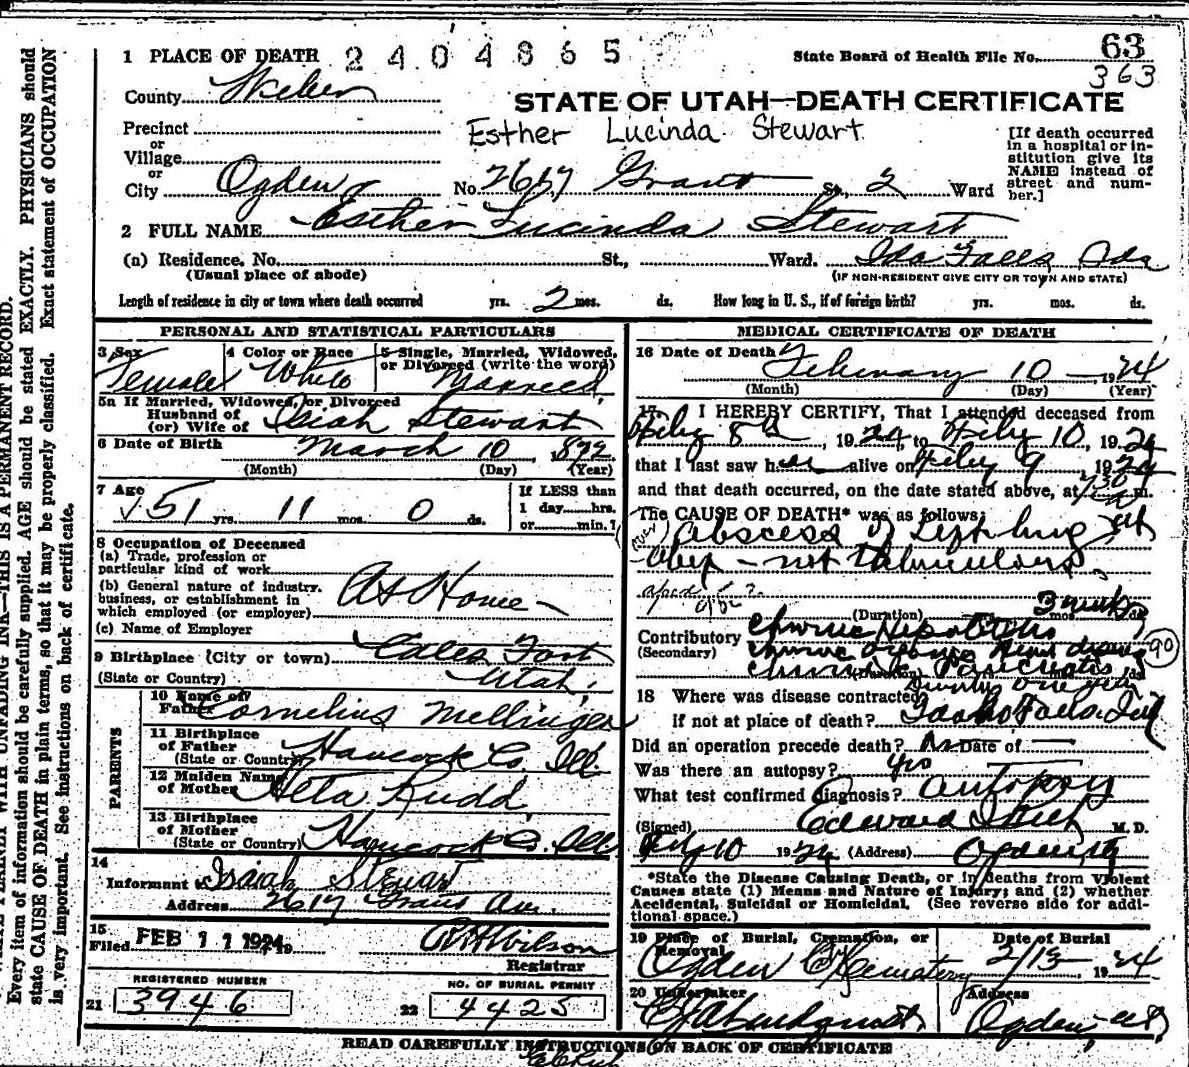 1 PLACE OF DEATH 2404865 State Board of Health File No. 63
363
County Weber
STATE OF UTAH—DEATH CERTIFICATE
Precinct
or
Village
or
City Ogden No. 2617 Grant St., 2 Ward
Esther Lucinda Stewart
[If death occurred
in a hospital or in-
stitution give its
NAME instead of
street and num-
ber.]
2 FULL NAME Esther Lucinda Stewart
(a) Residence, No. St., Ward. Ida Falls, Ida
(Usual place of abode) (IF NON-RESIDENT GIVE CITY OR TOWN AND STATE)
Length of residence in city or town where death occurred yrs. 2 mos. ds. How long in U. S., if of foreign birth? yrs. mos. ds.
PERSONAL AND STATISTICAL PARTICULARS
3 Sex Female
4 Color or Race White
5 Single, Married, Widowed,
or Divorced (write the word)
Married
5a If Married, Widowed, or Divorced
Husband of
(or) Wife of Isiah Stewart
6 Date of Birth March 10, 1872
(Month) (Day) (Year)
7 Age 51 yrs. 11 mos. 0 ds.
If LESS than
1 day......hrs.
or......min.?
8 Occupation of Deceased
(a) Trade, profession or
particular kind of work
(b) General nature of industry,
business, or establishment in
which employed (or employer)
At Home
(c) Name of Employer
9 Birthplace (City or town) Fort
(State or Country) Utah
PARENTS
10 Name of
Father Cornelius Mellinger
11 Birthplace
of Father
(State or Country) Hancock Co. Ill
12 Maiden Name
of Mother Rudd
13 Birthplace
of Mother
(State or Country) Hancock Co. Ill
14
Informant Isaiah Stewart
Address 2617 Grant Ave.
15
Filed FEB 11 1924 Wilson
Registrar
REGISTERED NUMBER
21 3946
NO. OF BURIAL PERMIT
22 4425
MEDICAL CERTIFICATE OF DEATH
16 Date of Death February 10 1924
(Month) (Day) (Year)
17 I HEREBY CERTIFY, That I attended deceased from
Feby 8th, 1924, to Feby 10, 1924
that I last saw her alive on Feby 9, 1924
and that death occurred, on the date stated above, at 730 a m.
The CAUSE OF DEATH* was as follows:
Abscess of Left lung at
apex - not tuberculous
(Duration) mos. 3 weeks ds.
Contributory Chronic
(Secondary) Chronic
Chronic Pancreatis
(Duration) yrs. mos. ds.
90
18 Where was disease contracted
If not at place of death? Idaho Falls
Did an operation precede death? No Date of
Was there an autopsy? yes
What test confirmed diagnosis? Autopsy
(Signed) Edward M. D.
Feby 10 1924 (Address) Ogden
*State the Disease Causing Death, or in deaths from Violent
Causes state (1) Means and Nature of Injury; and (2) whether
Accidental, Suicidal or Homicidal. (See reverse side for addi-
tional space.)
19 Place of Burial, Cremation, or
Removal
Ogden City Cemetery
Date of Burial
2/13 1924
20 Undertaker
Address
Ogden, Ut
READ CAREFULLY INSTRUCTIONS ON BACK OF CERTIFICATE
WITH UNFADING INK—THIS IS A PERMANENT RECORD.
Every item of information should be carefully supplied. AGE should be stated EXACTLY. PHYSICIANS should
state CAUSE OF DEATH in plain terms, so that it may be properly classified. Exact statement of OCCUPATION
is very important. See instructions on back of certificate.